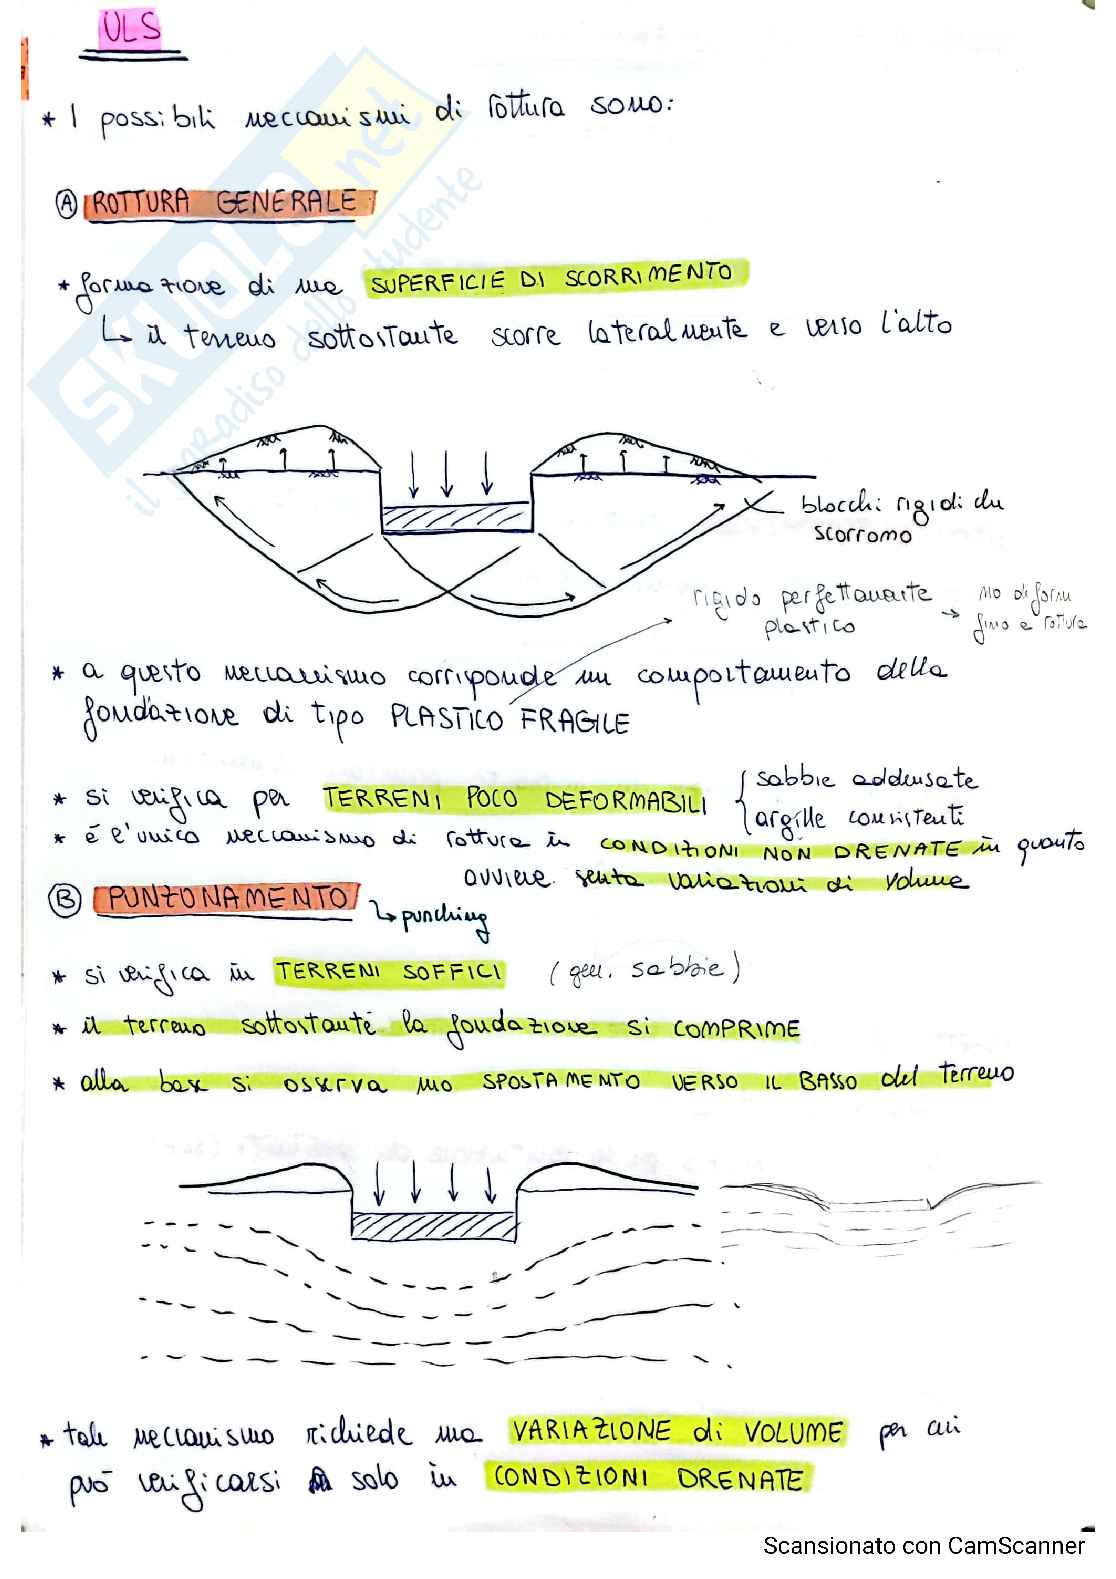 ULS
* I possibili meccanismi di rottura sono:
Ⓐ ROTTURA GENERALE
* formazione di una SUPERFICIE DI SCORRIMENTO
↳ il terreno sottostante scorre lateralmente e verso l'alto
blocchi rigidi che
scorrono
rigido perfettamente
plastico
→ no deform
fino a rottura
* a questo meccanismo corrisponde un comportamento della
fondazione di tipo PLASTICO FRAGILE
* si verifica per TERRENI POCO DEFORMABILI { sabbie addensate
argille consistenti
* è l'unico meccanismo di rottura in CONDIZIONI NON DRENATE in quanto
avviene senza variazioni di volume
Ⓑ PUNZONAMENTO
↳ punching
* si verifica in TERRENI SOFFICI (gen. sabbie)
* il terreno sottostante la fondazione si COMPRIME
* alla base si osserva uno SPOSTAMENTO VERSO IL BASSO del terreno
* tale meccanismo richiede una VARIAZIONE di VOLUME per cui
può verificarsi solo in CONDIZIONI DRENATE
SKUOLA.net
il paradiso dello studente
Scansionato con CamScanner